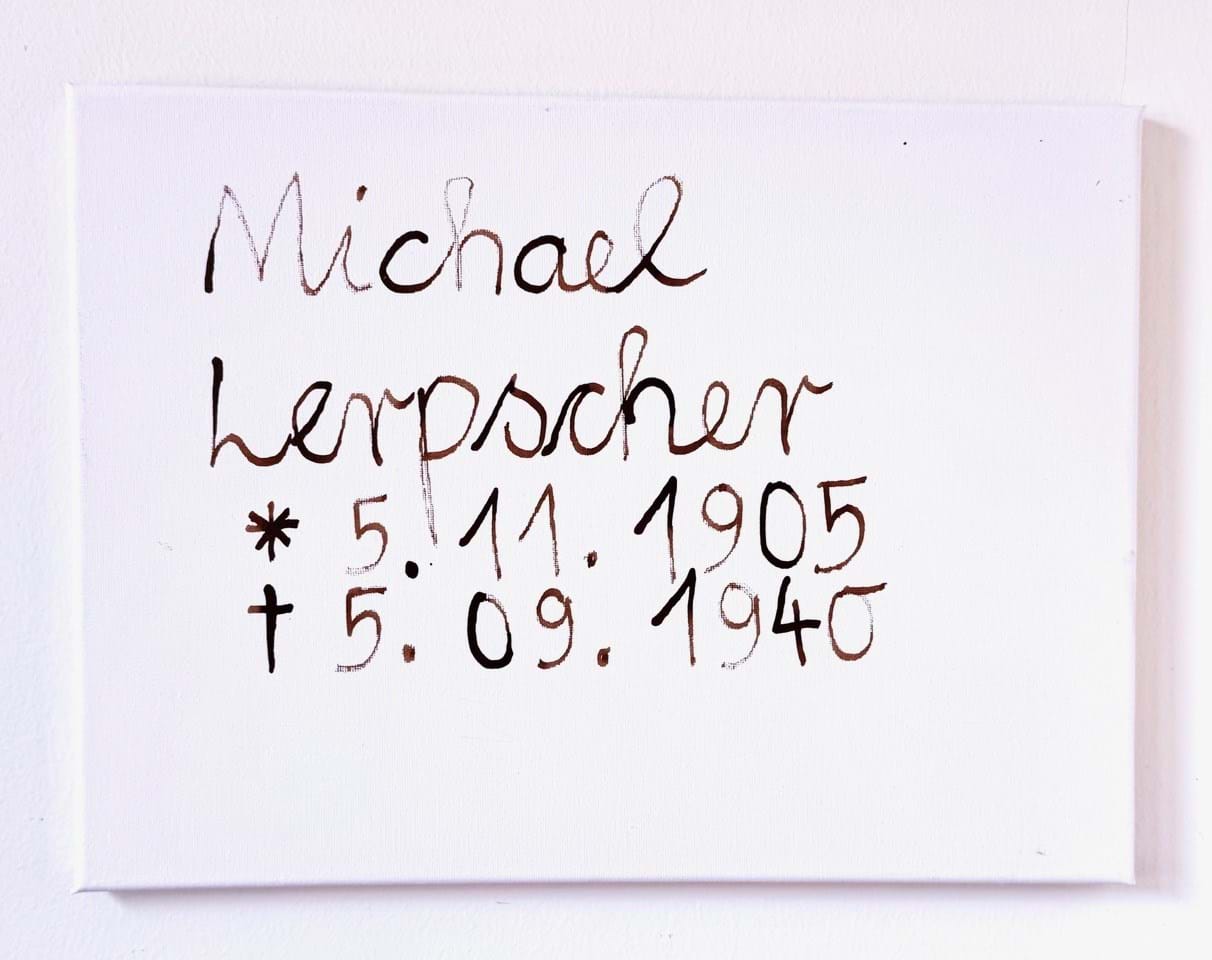 Michael
Lerpscher
* 5. 11. 1905
† 5. 09. 1940